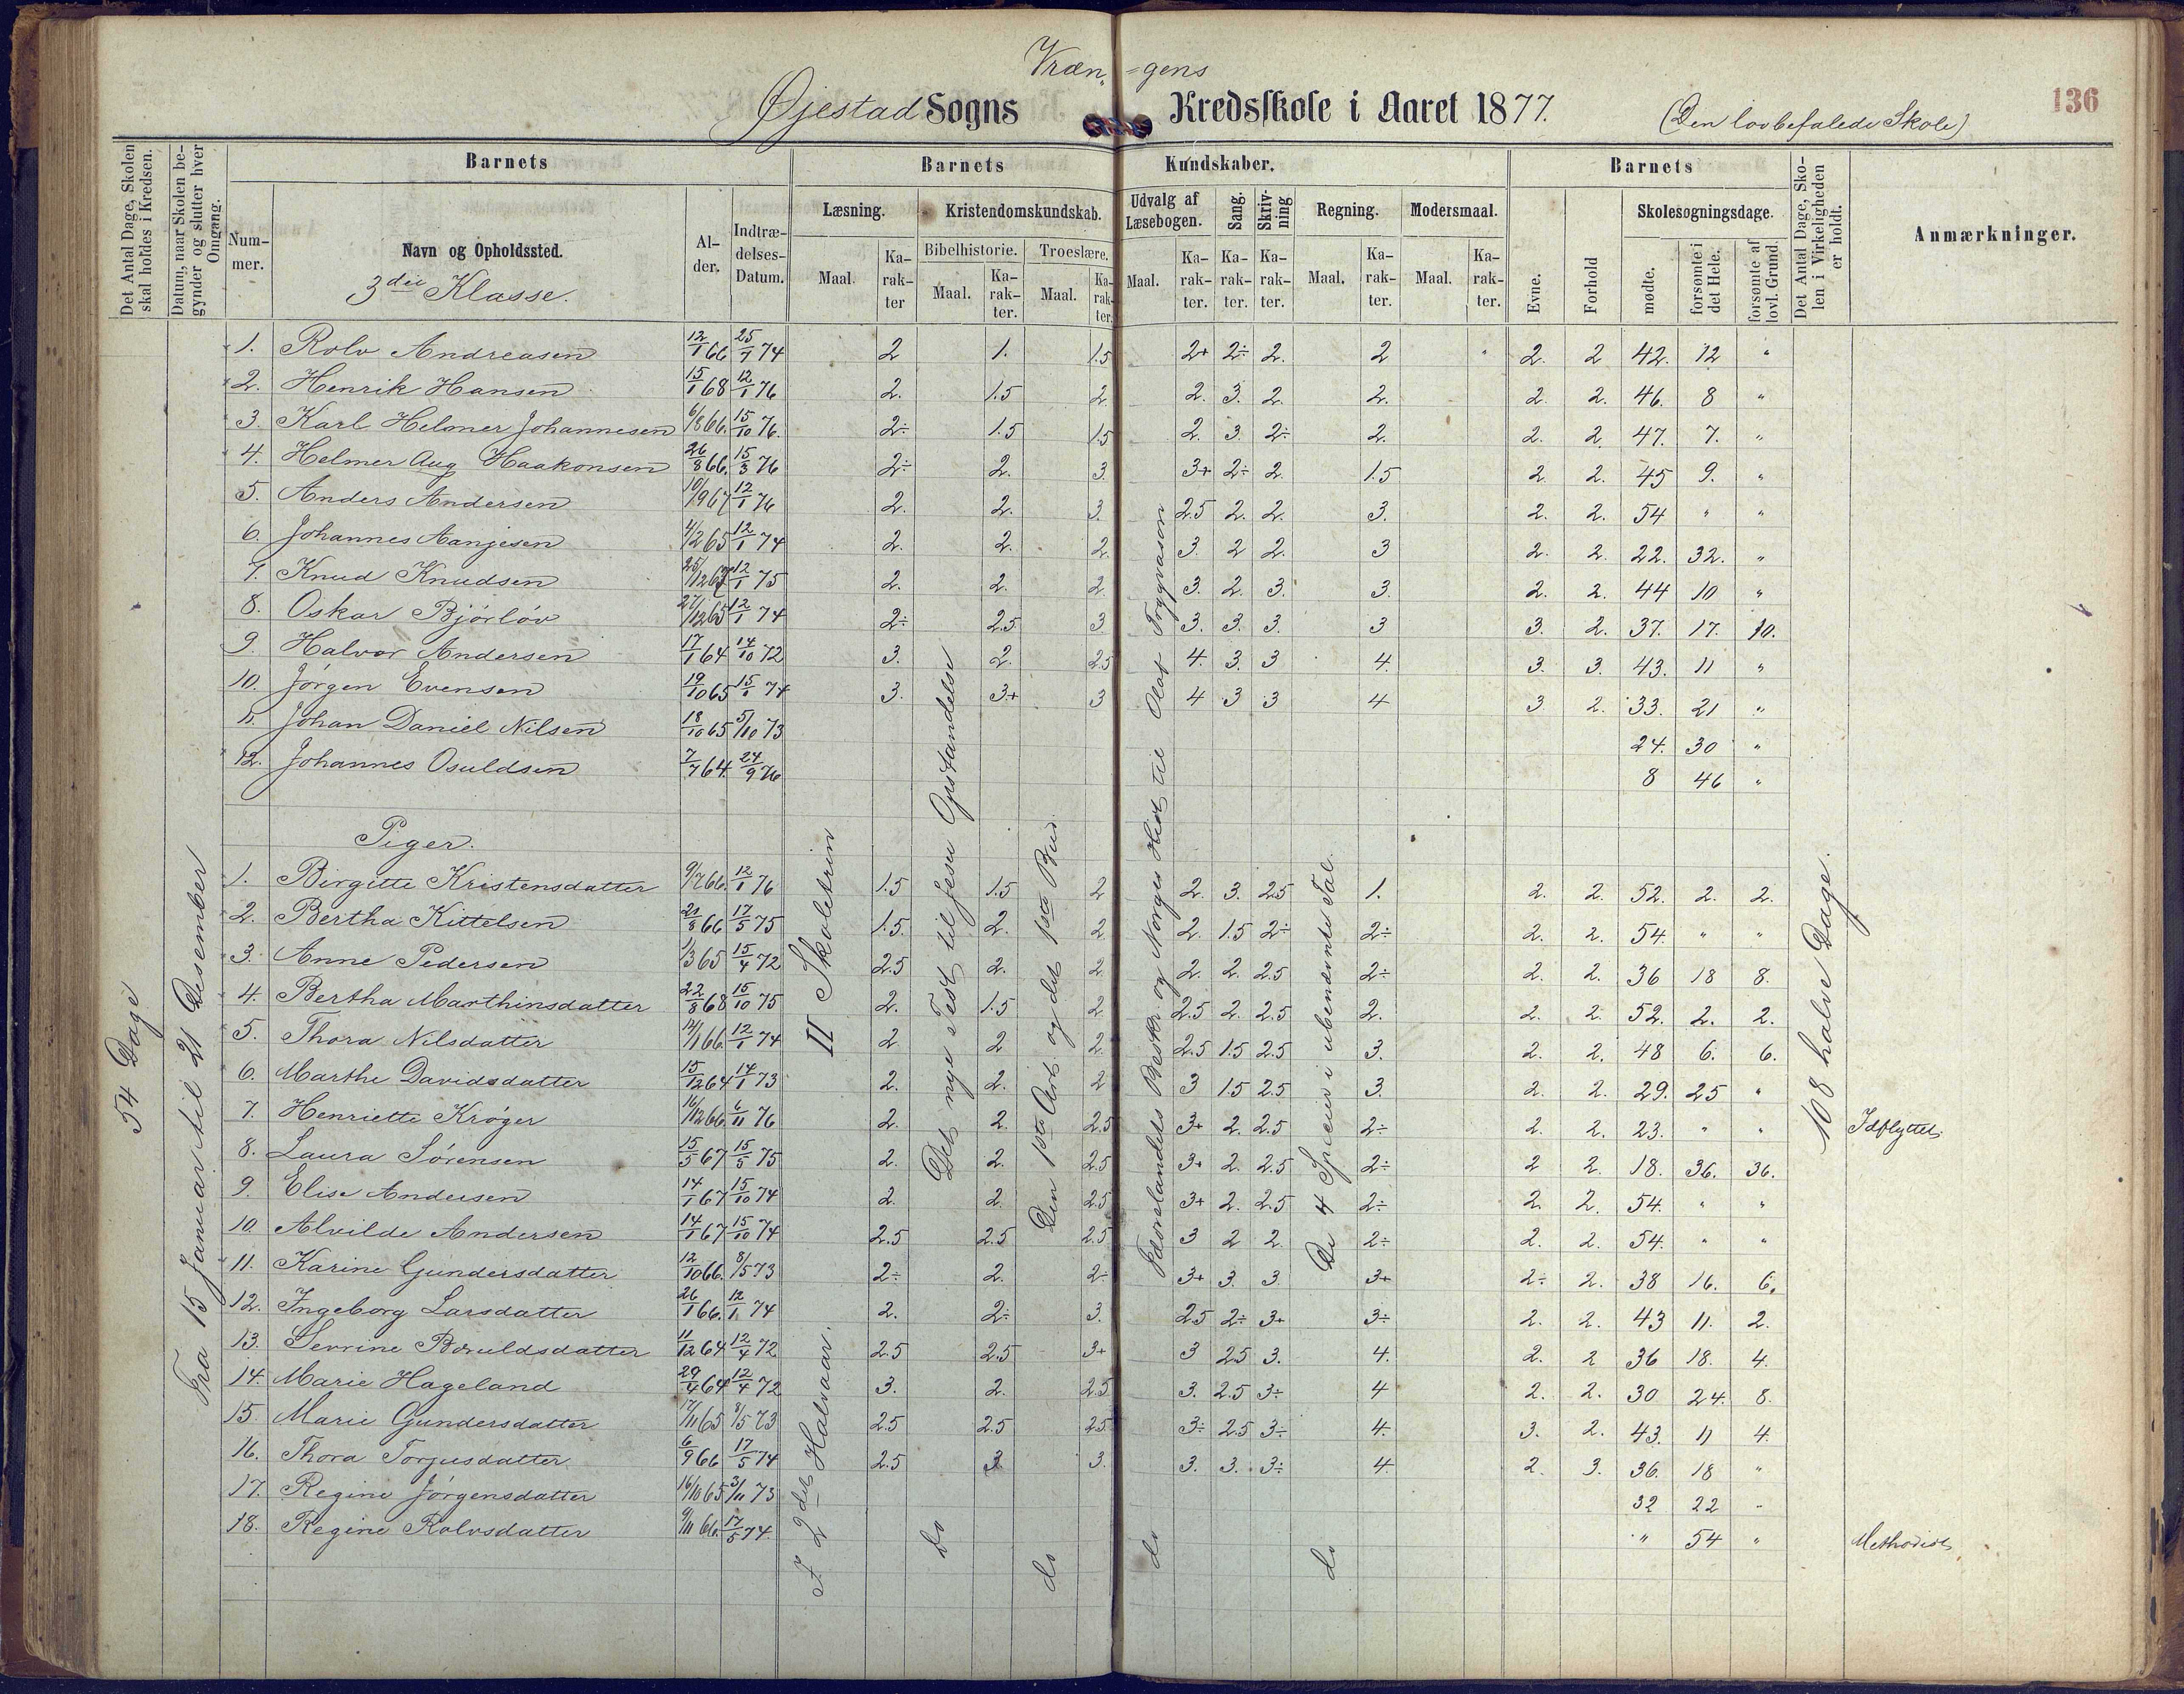 Vræn-gens
Øjestad Sogns Kredsskole i Aaret 1877. (Den lovbefalede Skole) 136
Det Antal Dage, Skolen skal holdes i Kredsen.
Datum, naar Skolen begynder og slutter hver Omgang.
Barnets Barnets Kundskaber. Barnets
Det Antal Dage, Skolen i Virkeligheden er holdt.
Anmærkninger.
Nummer. Navn og Opholdssted. Alder. Indtrædelses-Datum. Læsning. Kristendomskundskab. Udvalg af Læsebogen. Sang. Skrivning Regning. Modersmaal. Evne. Forhold Skolesøgningsdage.
Bibelhistorie. Troeslære.
Maal. Karakter Maal. Karakter. Maal. Karakter. Maal. Karakter. Karakter. Karakter. Maal. Karakter. Maal. Karakter. mødte. forsømte i det Hele. forsømte af lovl. Grund.
3die Klasse.
1. Rolv Andreasen 12/1 66 25/1 74 2 1. 1.5 2+ 2÷ 2. 2 " 2. 2 42. 12 "
2. Henrik Hansen 15/1 68 12/1 76 2. 1.5 2 2. 3. 2. 2. 2. 2. 46. 8 "
3. Karl Helmer Johannesen 6/8 66. 15/10 76. 2÷ 1.5 1.5 2. 3. 2÷ 2. 2. 2. 47. 7. "
4. Helmer Aug Haakonsen 26/8 66. 15/3 76 2÷ 2. 3. 3+ 2÷ 2. 1.5 2. 2. 45 9. "
5. Anders Andersen 10/9 67 12/1 76 2. 2. 3. 2.5 2. 2. 3. 2. 2. 54 " "
6. Johannes Aanjesen 4/2 65 12/1 74 2. 2. 2. 3. 2 2. 3 2. 2. 22. 32. "
7. Knud Knudsen 12/1 75 2. 2. 2. 3. 2. 3. 3. 2. 2. 44 10 "
8. Oskar Bjørløv 27/12 65 12/1 74 2÷ 2.5 3. 3. 3. 3. 3 3. 2. 37. 17. 10.
9. Halvor Andersen 17/1 64 14/10 72 3. 2. 2.5 4. 3. 3 4. 3. 3. 43. 11 "
10. Jørgen Evensen 19/10 65 15/1 74 3. 3+ 3 4 3 3 4 3 2. 33. 21 "
11. Johan Daniel Nilsen 18/10 65 5/10 73 24. 30 "
12. Johannes Osuldsen 7/7 64. 24/9 76 8 46 "
Piger.
1. Birgitte Kristensdatter 9/7 66. 12/1 76 1.5 1.5 2 2. 3. 2.5 1. 2. 2. 52. 2. 2.
2. Bertha Kittelsen 21/8 66 17/5 75 1.5. 2. 2 2. 1.5 2÷ 2÷ 2. 2. 54. " "
3. Anne Pedersen 1/3 65 15/4 72 2.5 2. 2. 2. 2. 2.5 2÷ 2. 2. 36 18 8.
4. Bertha Marthinsdatter 22/8 68 15/10 75 2. 1.5 2. 2.5 2. 2.5 2. 2. 2. 52. 2. 2.
5. Thora Nilsdatter 14/1 66. 12/1 74 2. 2 2. 2.5 1.5 2.5 3. 2. 2. 48 6. 6.
6. Marthe Davidsdatter 15/12 64 14/1 73 2. 2. 2 3 1.5 2.5 3. 2. 2. 29. 25 "
7. Henriette Krøger 16/12 66. 6/11 76 2. 2. 2.5 3+ 2. 2.5 2÷ 2. 2. 23. " " Idflyttet.
8. Laura Sørensen 15/5 67 15/5 75 2. 2. 2.5 3+ 2. 2.5 2÷ 2 2. 18. 36. 36.
9. Elise Andersen 14/1 67 15/10 74 2. 2. 2.5 3+ 2. 2.5 2÷ 2. 2. 54. " "
10 Alvilde Andersen 14/1 67 15/10 74 2.5 2.5 2.5 3 2 2. 2÷ 2. 2. 54. " "
11. Karine Gundersdatter 12/10 66. 8/5 73 2÷ 2. 2÷ 3+ 3. 3. 3+ 2÷ 2. 38 16. 6.
12. Ingeborg Larsdatter 26/1 66. 12/1 74 2. 2÷ 3. 2.5 2÷ 3+ 3÷ 2. 2. 43 11. 2.
13. Serrine Boruldsdatter 11/12 64 12/4 72 2.5 2.5 3+ 3 2.5 3. 4. 2. 2 36 18. 4.
14. Marie Hageland 29/4 64 12/4 72 3. 2. 2.5 3. 2.5 3÷ 4 2. 2. 30 24. 8.
15. Marie Gundersdatter 17/11 65 8/5 73 2.5 2.5 2.5 3÷ 2.5 3÷ 4. 3. 2. 43. 11 4.
16. Thora Torjusdatter 6/9 66 17/5 74 2.5 3 3. 3. 3. 3÷ 4. 2. 3. 36. 18 "
17. Regine Jørgensdatter 16/10 65 3/11 73 32 22 "
18. Regine Rolvsdatter 9/11 66. 17/5 74. " 54 " Methodist
54 Dage
Fra 15 Januar til 21 Desember
I 2det Halvaar. II Skoletrin
Det nye Test til Jesu Opstandelse
do
Den 1ste Art. og det 1ste Bud.
do
Fædrelandets Beskr. og Norges Hist til Olaf Trygvason
do
De 4 Specier i ubenævnte Tal.
do
108 halve Dage.